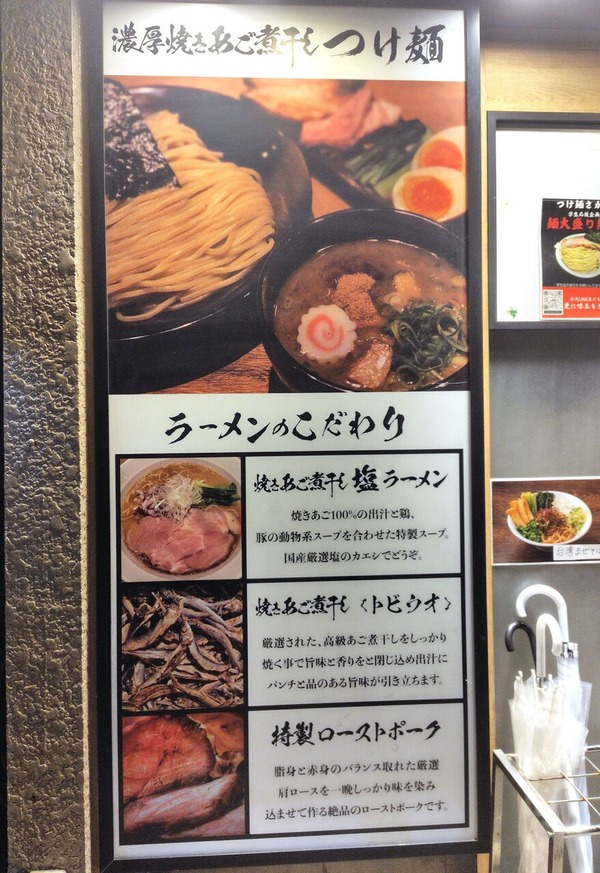 濃厚焼きあご煮干しつけ麺
ラーメンのこだわり
焼きあご煮干し塩ラーメン
焼きあご100%の出汁と鶏、
豚の動物系スープを合わせた特製スープ。
国産厳選塩のカエシでどうぞ。
焼きあご煮干し〈トビウオ〉
厳選された、高級あご煮干しをしっかり
焼く事で旨味と香りをと閉じ込め出汁に
パンチと品のある旨味が引き立ちます。
特製ローストポーク
脂身と赤身のバランス取れた厳選
肩ロースを一晩しっかり味を染み
込ませて作る絶品のローストポークです。
つけ麺さか
麺大盛り
台湾まぜそ